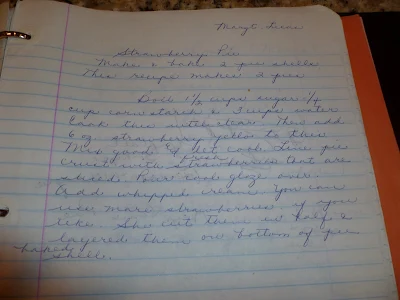 Strawberry Pie
Make & bake 2 pie shells
This recipe makes 2 pies
Boil 1 1/2 cups sugar 1/4
cup corn starch & 3 cups water
Cook this until clear. Then add
6 oz. strawberry yellow to this
Mix good & let cool. Line pie
crust with fresh strawberries that are
sliced. Pour cooled glaze over.
Add whipped cream. You can
use more strawberries if you
like. She cut them in half &
layered them on bottom of pie
baked shell.